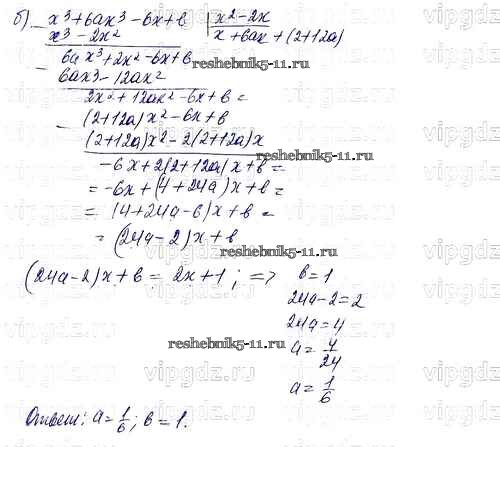 б) x³+6ax³-6x+b | x²-2x
- x³-2x² x+6ax+(2+12a)
6ax³+2x²-6x+b
- 6ax3-12ax²
2x²+12ax²-6x+b=
(2+12a)x²-6x+b
- (2+12a)x²-2(2+12a)x
-6x+2(2+12a)x+b=
=-6x+(4+24a)x+b=
=(4+24a-6)x+b=
=(24a-2)x+b
(24a-2)x+b=2x+1; => b=1
24a-2=2
24a=4
a=4/24
a=1/6
Ответ: a=1/6; b=1.
reshebnik5-11.ru
reshebnik5-11.ru
reshebnik5-11.ru
reshebnik5-11.ru
vipgdz.ru
vipgdz.ru
vipgdz.ru
vipgdz.ru